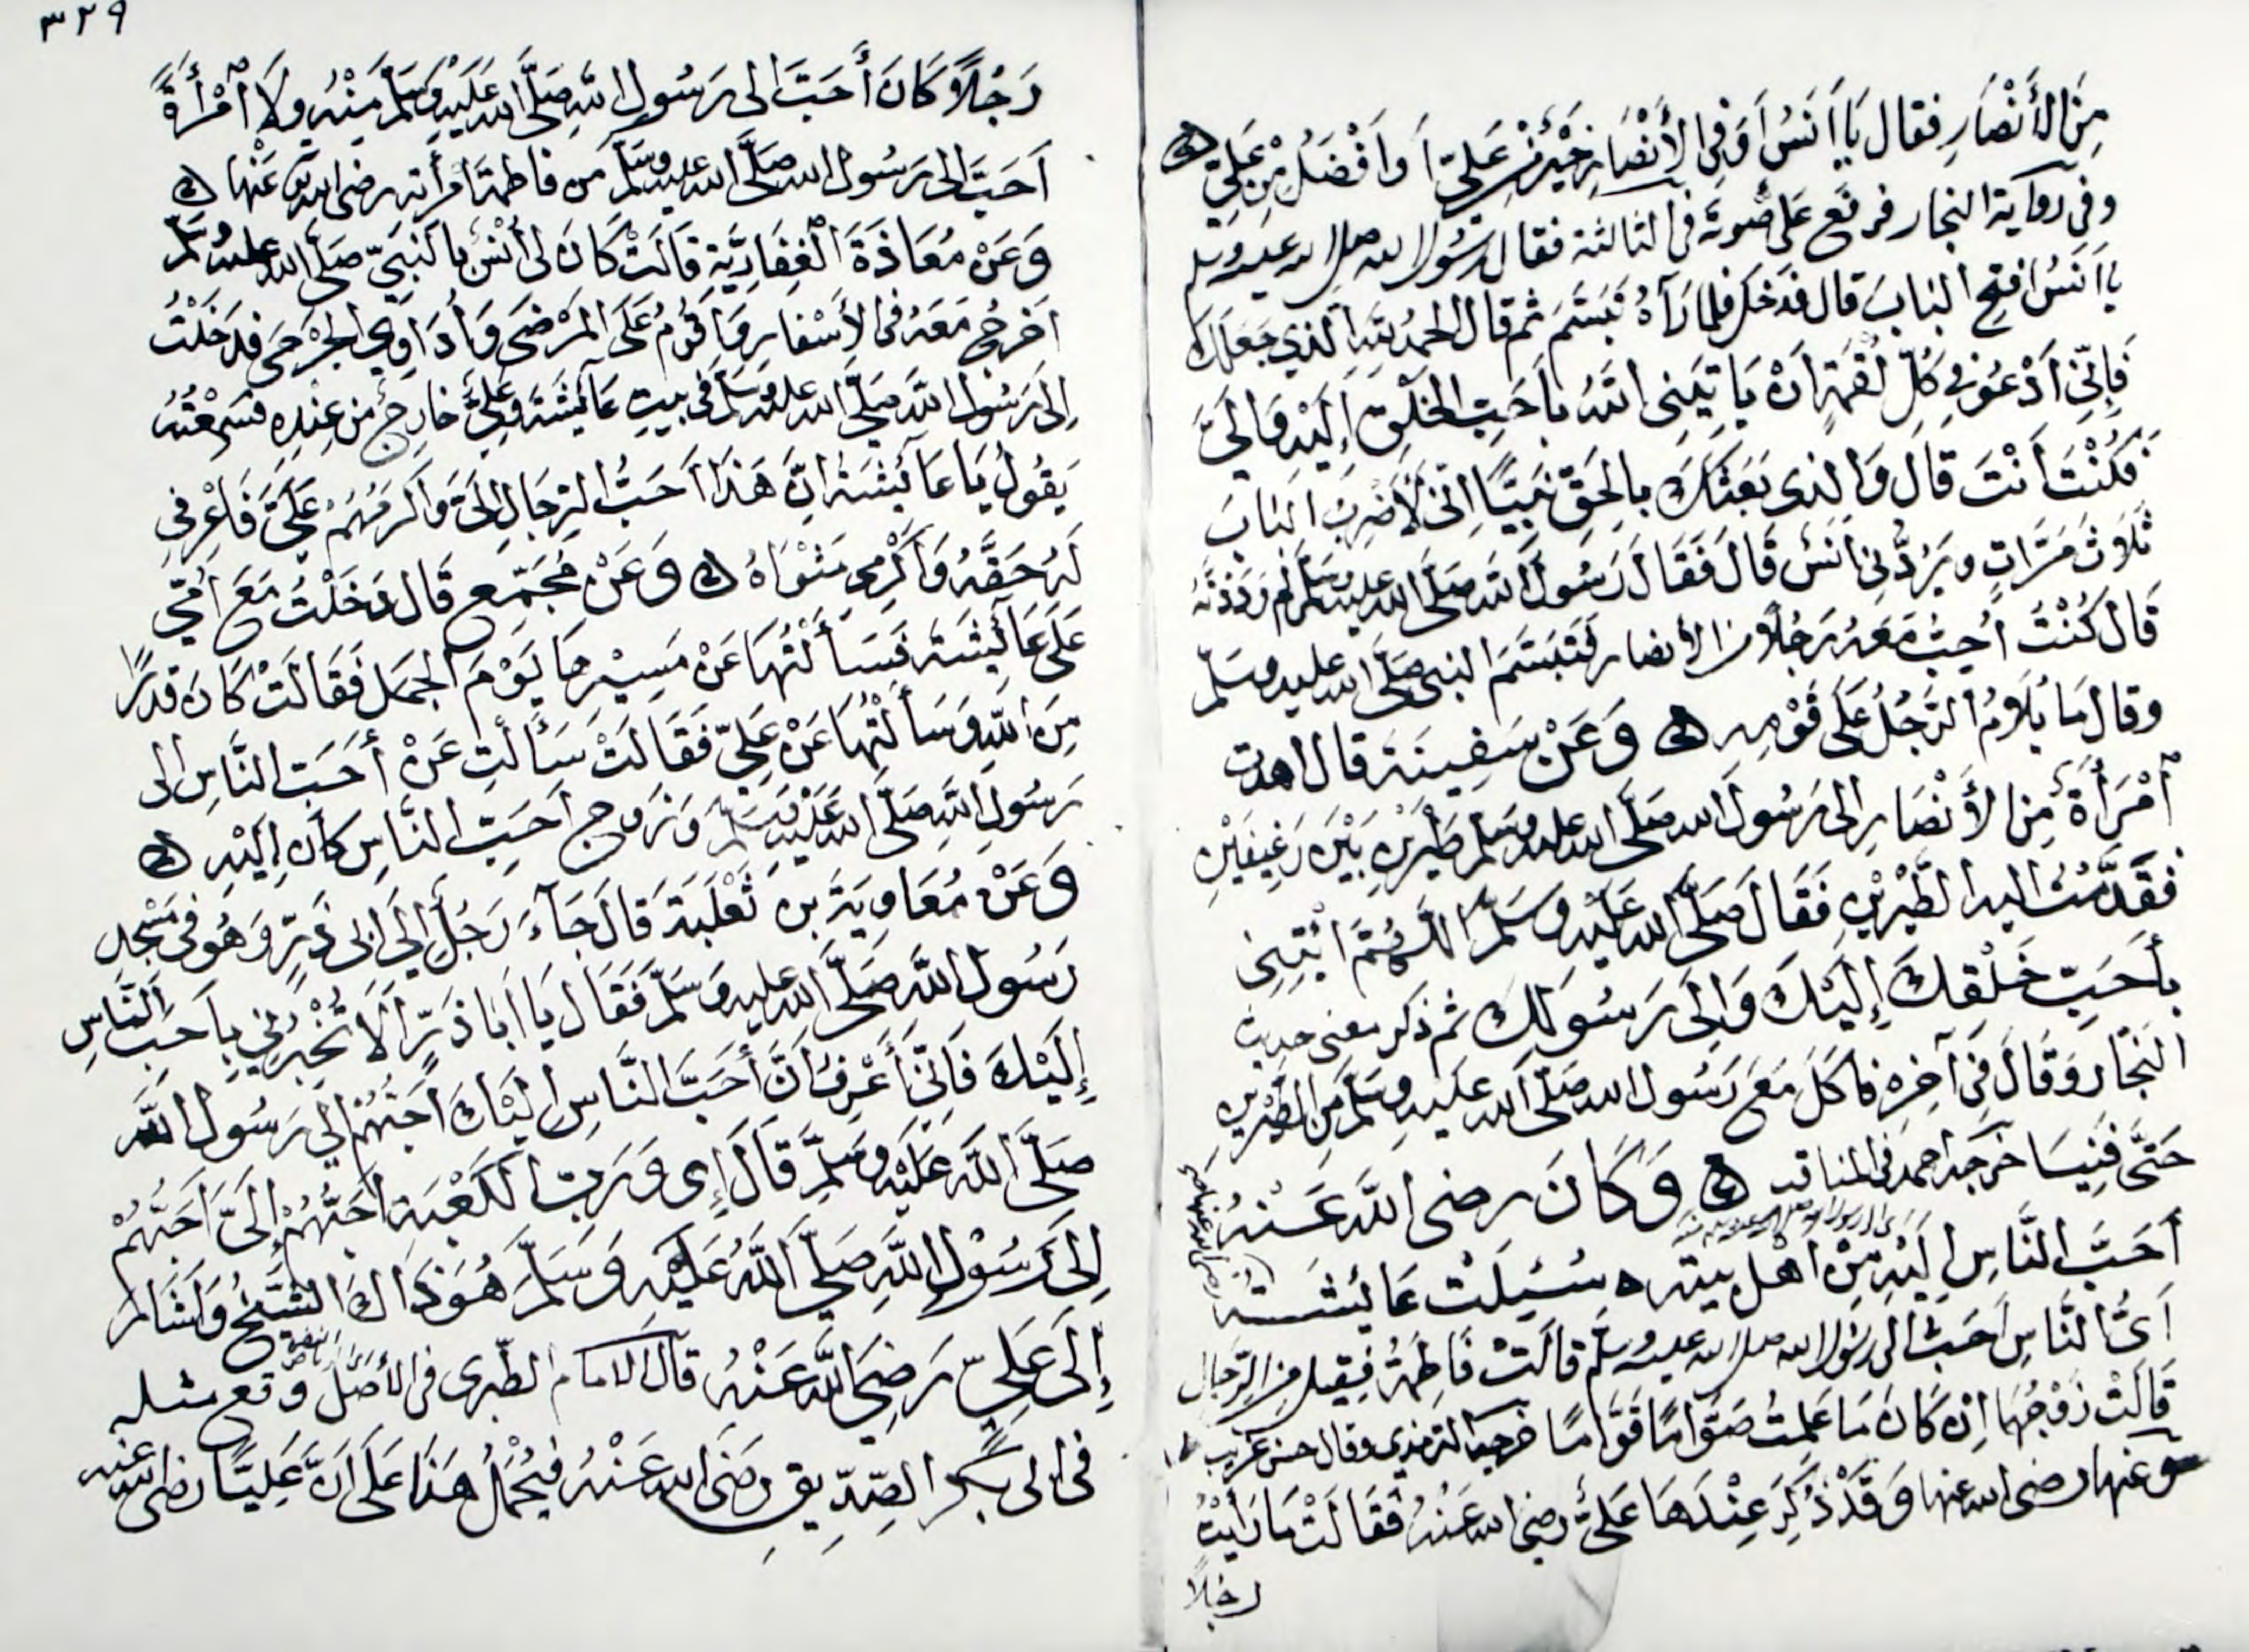 مِنَ الأَنْصَارِ فقال يَا أَنَسُ أَوَفِى الأَنْصَارِ خَيْرٌ مِنْ عَلِيّ أَوْ أَفْضَلُ مِنْ عَلِيّ ه
وفى رواية النجار فرفع عَلى صوته فى الثالثة فقال رَسُول الله صلى الله عليه وسلم
يا أَنَسُ افتح البابَ قال فدَخَل فلما رَآهُ تَبَسَّمَ ثم قال الحمدُ لِلَّهِ الذي جَعَلَكَ
فَإِنِّى أَدْعُو فِي كُلِّ لُقْمَةٍ أَنْ يَأتِيَنِى اللهُ بأَحَبِّ الخلْقِ إِلَيْهِ وَإِلَيَّ
فَكُنْتَ أَنْتَ قَالَ وَالذى بَعَثَكَ بالحَقِّ نَبِيًّا إِنِّى لأَضْرِبُ البَابَ
ثَلاثَ مَرَّاتٍ ويَرُدُّنِى أنَس قَالَ فَقَالَ رَسُولُ اللهِ صَلَّى الله عليه وسَلَّم لِمَ رَدَدْتَهُ
قَالَ كُنْتُ أُحِبُّ مَعَهُ رَجُلاً من الأنصار فَتَبَسَّمَ النبى صَلَّى الله عليه وسَلَّم
وقال مَا يُلاَمُ الرَّجُلُ عَلَى قَوْمِهِ ه وَعَنْ سَفِينَةَ قال اهدت
امْرَأَةٌ مِنَ الأَنْصَارِ إلى رَسُول الله صَلَّى الله عليه وسلم طَيْرَيْنِ بَيْنَ رَغِيفَيْنِ
فَقَدَّمْتُ اليه الطَّيْرَيْنِ فَقَالَ صَلَّى الله عَلَيْهِ وَسَلَّمَ اللَّهُمَّ ائْتِنِى
بأَحَبِّ خَلْقِكَ إِلَيْكَ وَإِلَى رَسُولِكَ ثم ذكر معنى حديث
النجار وَقَالَ فِى آخِرِهِ فاكَلَ مَعَ رَسُول الله صَلَّى الله عَليهِ وسَلَّمَ مِنَ الطَّيْرَيْنِ
حَتَّى فَنِيَا خرجه احمد فى المناقب ه وَكَانَ رضى اللهُ عَنْهُ
أَحَبَّ النَّاسِ إِلَيْهِ مِنْ أَهْلِ بيته ه سُئِلَتْ عَائِشَة
رضى الله عنها
أَىُّ النَّاسِ أَحَبُّ الى رَسُول الله صلى الله عليه وسلم قالَتْ فَاطِمَةُ فقيل مِنَ الرِّجَالِ
قَالَتْ زَوْجُهَا إِنْ كَانَ مَا عَلِمْتُ صَوَّامًا قَوَّامًا خرجه الترمذى وقال حسن غريب
وعنها رضى الله عنها وَقَدْ ذُكِرَ عِنْدَهَا عَلِىٌّ رضى الله عَنْهُ فَقَالَتْ مَا رَأَيْتُ
رجلاً
٣٢٩
رَجُلاً كَانَ أَحَبَّ إلى رَسُول اللهِ صَلَّى الله عَلَيْهِ وَسَلَّمَ مِنْهُ وِلاَ امْرَأَةً
أَحَبَّ إلى رَسُول الله صَلَّى الله عليه وسَلَّمَ من فاطمة امرأته رضى الله عَنْها ه
وَعَنْ مُعَاذَةَ الْغِفَارِيَّةِ قَالَتْ كَانَ لى أُنْسٌ بِالنَبِيّ صَلَّى الله عليه وسلم
أَخرُجُ مَعَهُ فى الأَسْفَارِ وَأقُومُ عَلَى المَرْضَى وَأُدَاوِى الْجَرْحَى فدَخَلْتُ
إِلى رَسُول الله صَلَّى الله عليه وسَلَّم فى بيتِ عَائِشَةَ وعَلِىٌّ خَارِجٌ من عِنْدِهِ فسَمِعْتُهُ
يَقُولُ يَا عَائِشَةُ إِنَّ هَذَا أَحَبُّ الرِّجَالِ إِلَىَّ وَأَكْرَمُهُمْ عَلَىَّ فَاعْرِفِى
لَهُ حَقَّهُ وَأَكْرِمِى مَثْوَاهُ ه وَعَنْ مُجَمِّعٍ قَال دَخَلْتُ مَعَ أمِّي
عَلَى عَائِشَةَ فَسَأَلْتُهَا عَنْ مَسِيْرِهَا يَوْمَ الْجَمَلِ فَقَالَتْ كَانَ قَدَرًا
مِنَ اللهِ وَسَأَلْتُهَا عَنْ عَلِىّ فَقَالَتْ سَأَلْتِ عَنْ أَحَبِّ النَّاسِ إلى
رَسُولِ اللهِ صَلَّى الله عَلَيْهِ وَسَلَّمَ وَزَوجِ أَحَبِّ النَّاسِ كَانَ إِلَيْهِ ه
وَعَنْ مُعَاوِيَةَ بن ثَعْلَبَةَ قَالَ جَاءَ رَجُلٌ إِلَى أَبِى ذَرٍّ وَهُوَ فى مَسْجِد
رَسُولِ الله صَلَّى الله عليه وَسَلَّم فَقَالَ يَا أَبَا ذَرٍّ أَلاَ تُخْبِرُنِي بِأَحَبِّ النَّاسِ
إِلَيْكَ فَإِنِّى أَعْرِفُ أَنَّ أَحَبَّ النَّاسِ إلَيْكَ أَحَبُّهُمْ إِلى رَسُولِ اللَّهِ
صَلَّى اللهُ عَلَيْهِ وسَلَّمَ قَالَ إِى وَرَبِّ الكَعْبَةِ أَحَبُّهُمْ إِلَىَّ أَحَبُّهُمْ
إِلَى رَسُوْلِ اللهِ صَلَّى اللهُ عَلَيْهِ وَسَلَّمَ هُوَ ذَاكَ الشَّيْخُ وَأشَارَ
إِلَى عَلِىّ رَضِىَ اللهُ عَنْهُ قَالَ الامام الطبرى فى الأصل وقع مثله
فى ابى بَكْرٍ الصِّدِّيقِ رضَى الله عَنْهُ فيُحْمَلُ هَذَا عَلَى أَنَّ عَلِيًّا رضى الله عنه